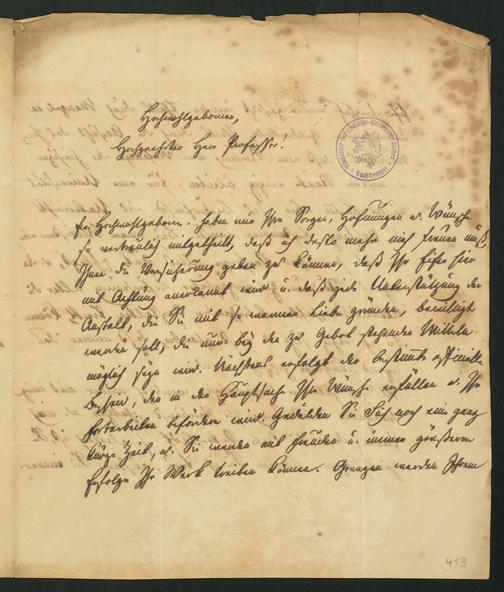 Hochwohlgeborner,
Hochgeehrter Herr Professor!
Ew. Hochwohlgeborn. haben mir Ihre Sorgen, Hoffnungen u. Wünsche
so vertraulich mitgetheilt, daß ich desto mehr mich freuen muß
Ihnen die Versicherung geben zu können, daß Ihr Eifer hier
mit Achtung anerkannt wird u. daß jede Unterstützung der
Anstalt, die Sie mit so warmer Liebe gründen, bewilligt
werden soll, die nur bey den zu Gebot stehenden Mitteln
möglich seyn wird. Nächstens erfolgt der bestimmte officielle
Bescheid, der in der Hauptsache Ihre Wünsche erfüllen u. Ihr
Fortarbeiten befördern wird. Gedulden Sie Sich noch eine ganz
kurze Zeit, u. Sie werden mit Freuden u. immer größerm
Erfolge Ihr Werk treiben können. Grenzen werden Ihrem
413